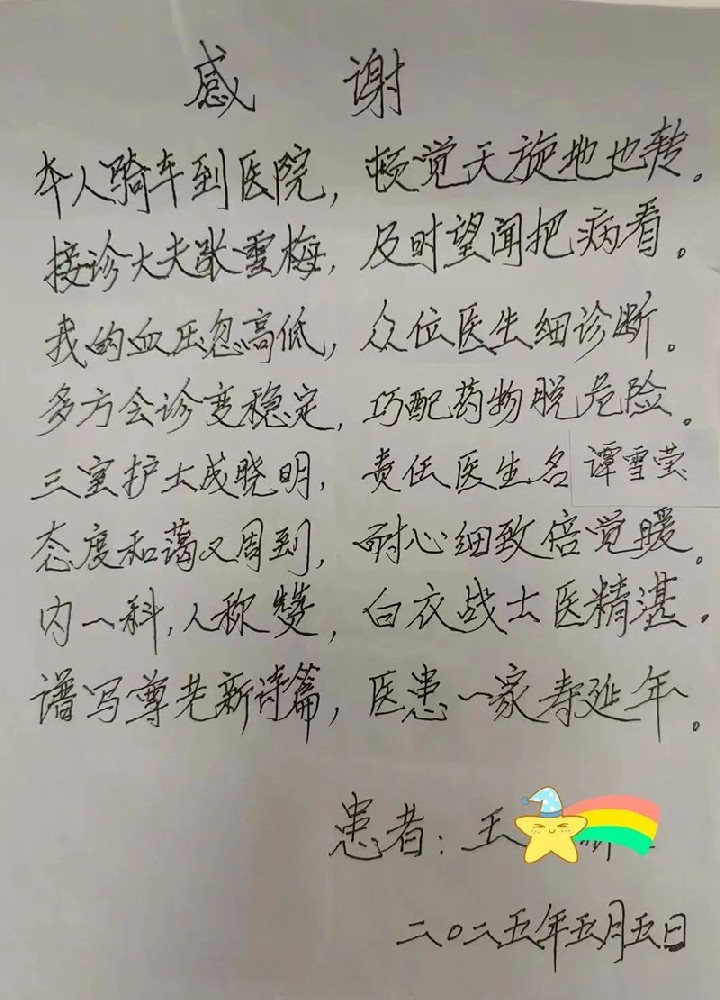 感 谢
本人骑车到医院，顿觉天旋地也转。
接诊大夫张雪梅，及时望闻把病看。
我的血压忽高低，众位医生细诊断。
多方会诊变稳定，巧配药物脱危险。
三室护士成晓明，责任医生名谭雪莹
态度和蔼又周到，耐心细致倍觉暖。
内一科，人称赞，白衣战士医精湛。
谱写尊老新诗篇，医患一家寿延年。
患者：王
二〇二五年五月五日